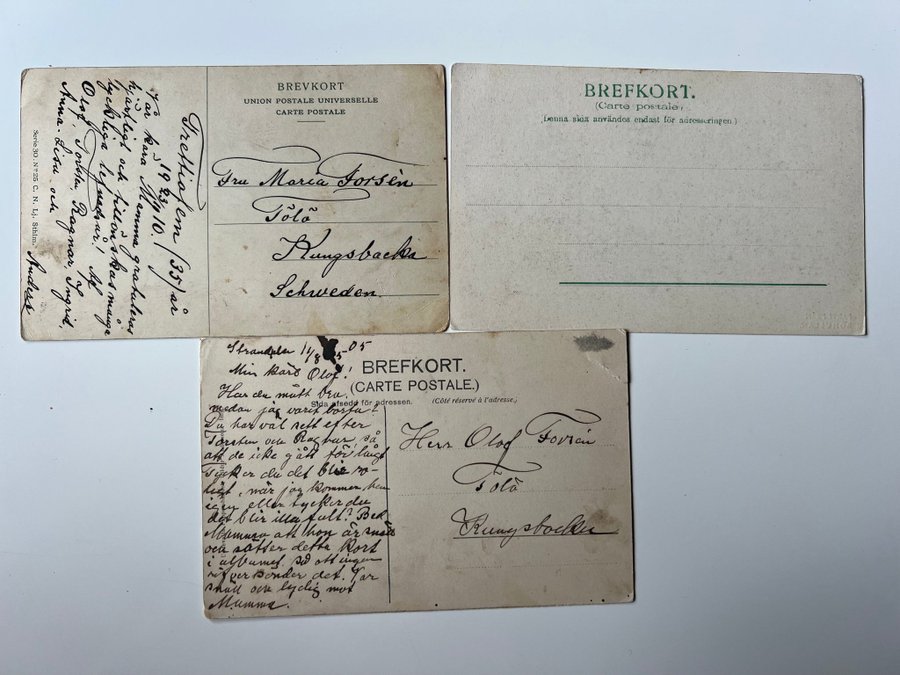 BREVKORT
UNION POSTALE UNIVERSELLE
CARTE POSTALE
Fru Maria Forsén
Tölö
Kungsbacka
Schweden.
Trettiofem (35) år
1923/10.
Vår kära Mamma gratuleras
hjärtligt och tillönskas många
lyckliga lefnadsår! Af
Olof, Torsten, Ragnar, Ingrid,
Anna-Lisa och
Anders
Serie 30. Nº 25 C. N. Lj. Sthlm.
BREFKORT.
(Carte postale)
(Denna sida användes endast för adresseringen.)
BREFKORT.
(CARTE POSTALE.)
Sida afsedd för adressen. (Côté réservé à l'adresse.)
05
Min kära Olof!
Har du mått bra
medan jag varit borta?
Du har väl sett efter
Torsten och Ragnar, så
att de icke gått för långt
Tycker du det blir ro-
ligt, när jag kommer hem
igen eller tycker du
det blir illa fult? Bed
Mamma att hon är snäll
och sätter detta kort
i albumet så att ingen
rifver sönder det. Var
snäll och lydig mot
Mamma.
Herr Olof Forsén
Tölö
Kungsbacka